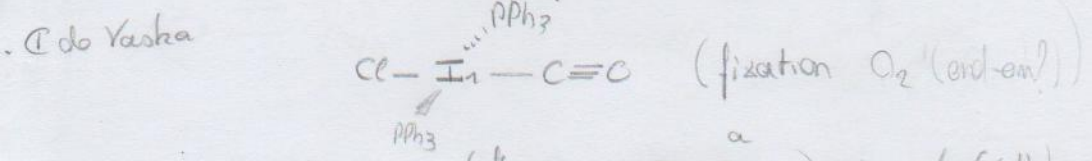 . C de Vaska
PPh3
Cl — Ir — C≡O (fixation O2 (end-on?))
PPh3
a